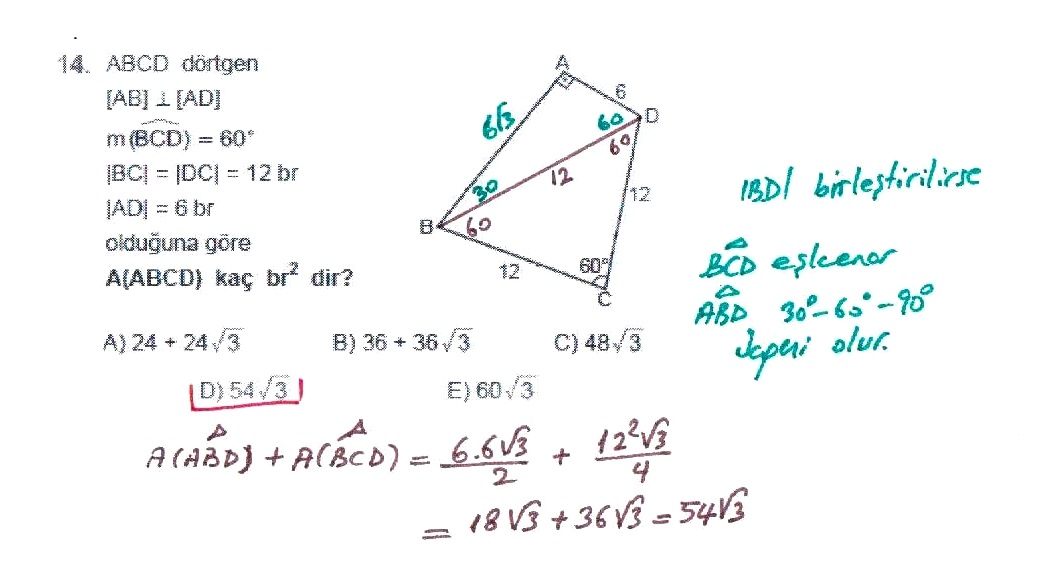 14. ABCD dörtgen
[AB] ⊥ [AD]
m(BCD) = 60°
|BC| = |DC| = 12 br
|AD| = 6 br
olduğuna göre
A(ABCD) kaç br² dir?
A
6
D
6√3
60
60
30
12
12
B
60
12
60°
C
|BD| birleştirilirse
BCD eşkenar
ABD 30°-60°-90°
üçgeni olur.
A) 24 + 24√3 B) 36 + 36√3 C) 48√3
D) 54√3 E) 60√3
A(ABD) + A(BCD) = 6.6√3/2 + 12²√3/4
= 18√3 + 36√3 = 54√3